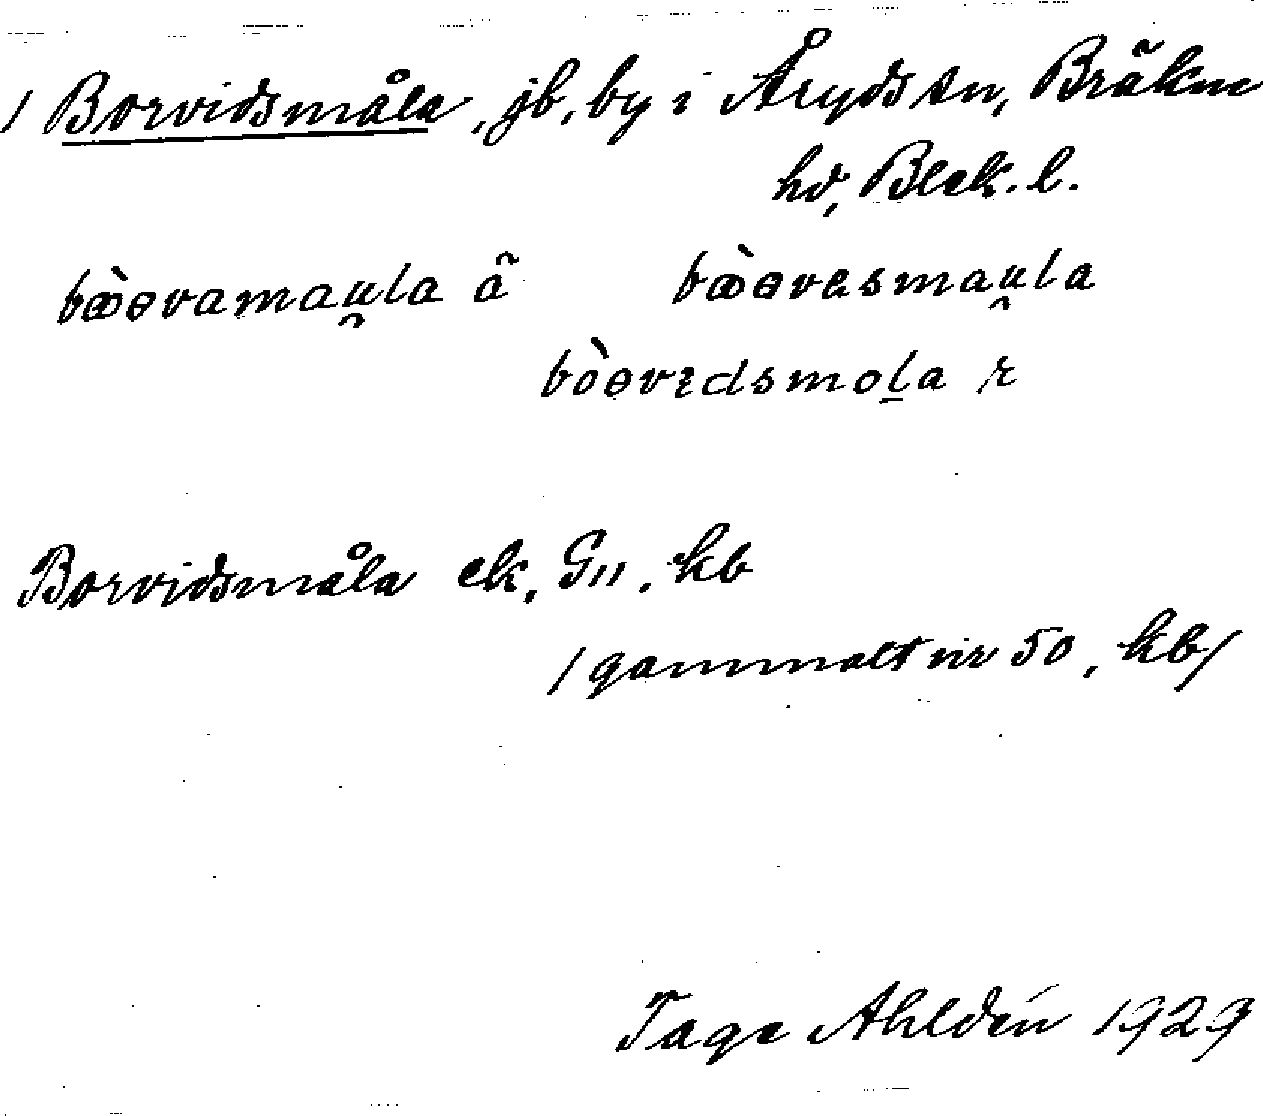 / Borvidsmåla, jb, by i Åryds sn, Bräkne
hd, Blek. l.
bòɵvamau̯la ã bòɵvesmau̯la
bòɵvɪdsmoḻa r
Borvidsmåla ek, G11, kb
/gammalt nr 50, kb/
Tage Ahldén 1929